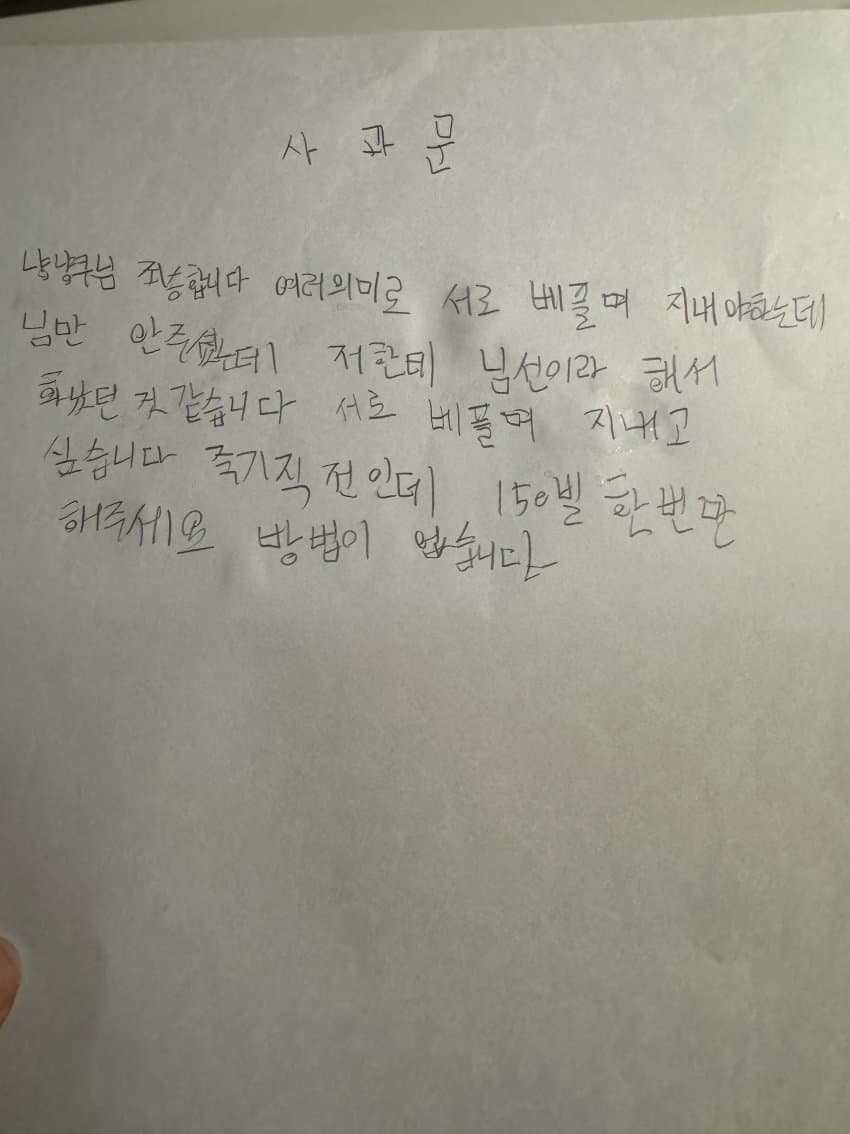 사 과 문
냥냥쿠님 죄송합니다 여러의미로 서로 베플며 지내야하는데
님만 안주셨는데 저한테 님선이라 해서
화났던 것 같습니다 서로 베플며 지내고
싶습니다 죽기직전인데 150빌 한번만
해주세요 방법이 없습니다